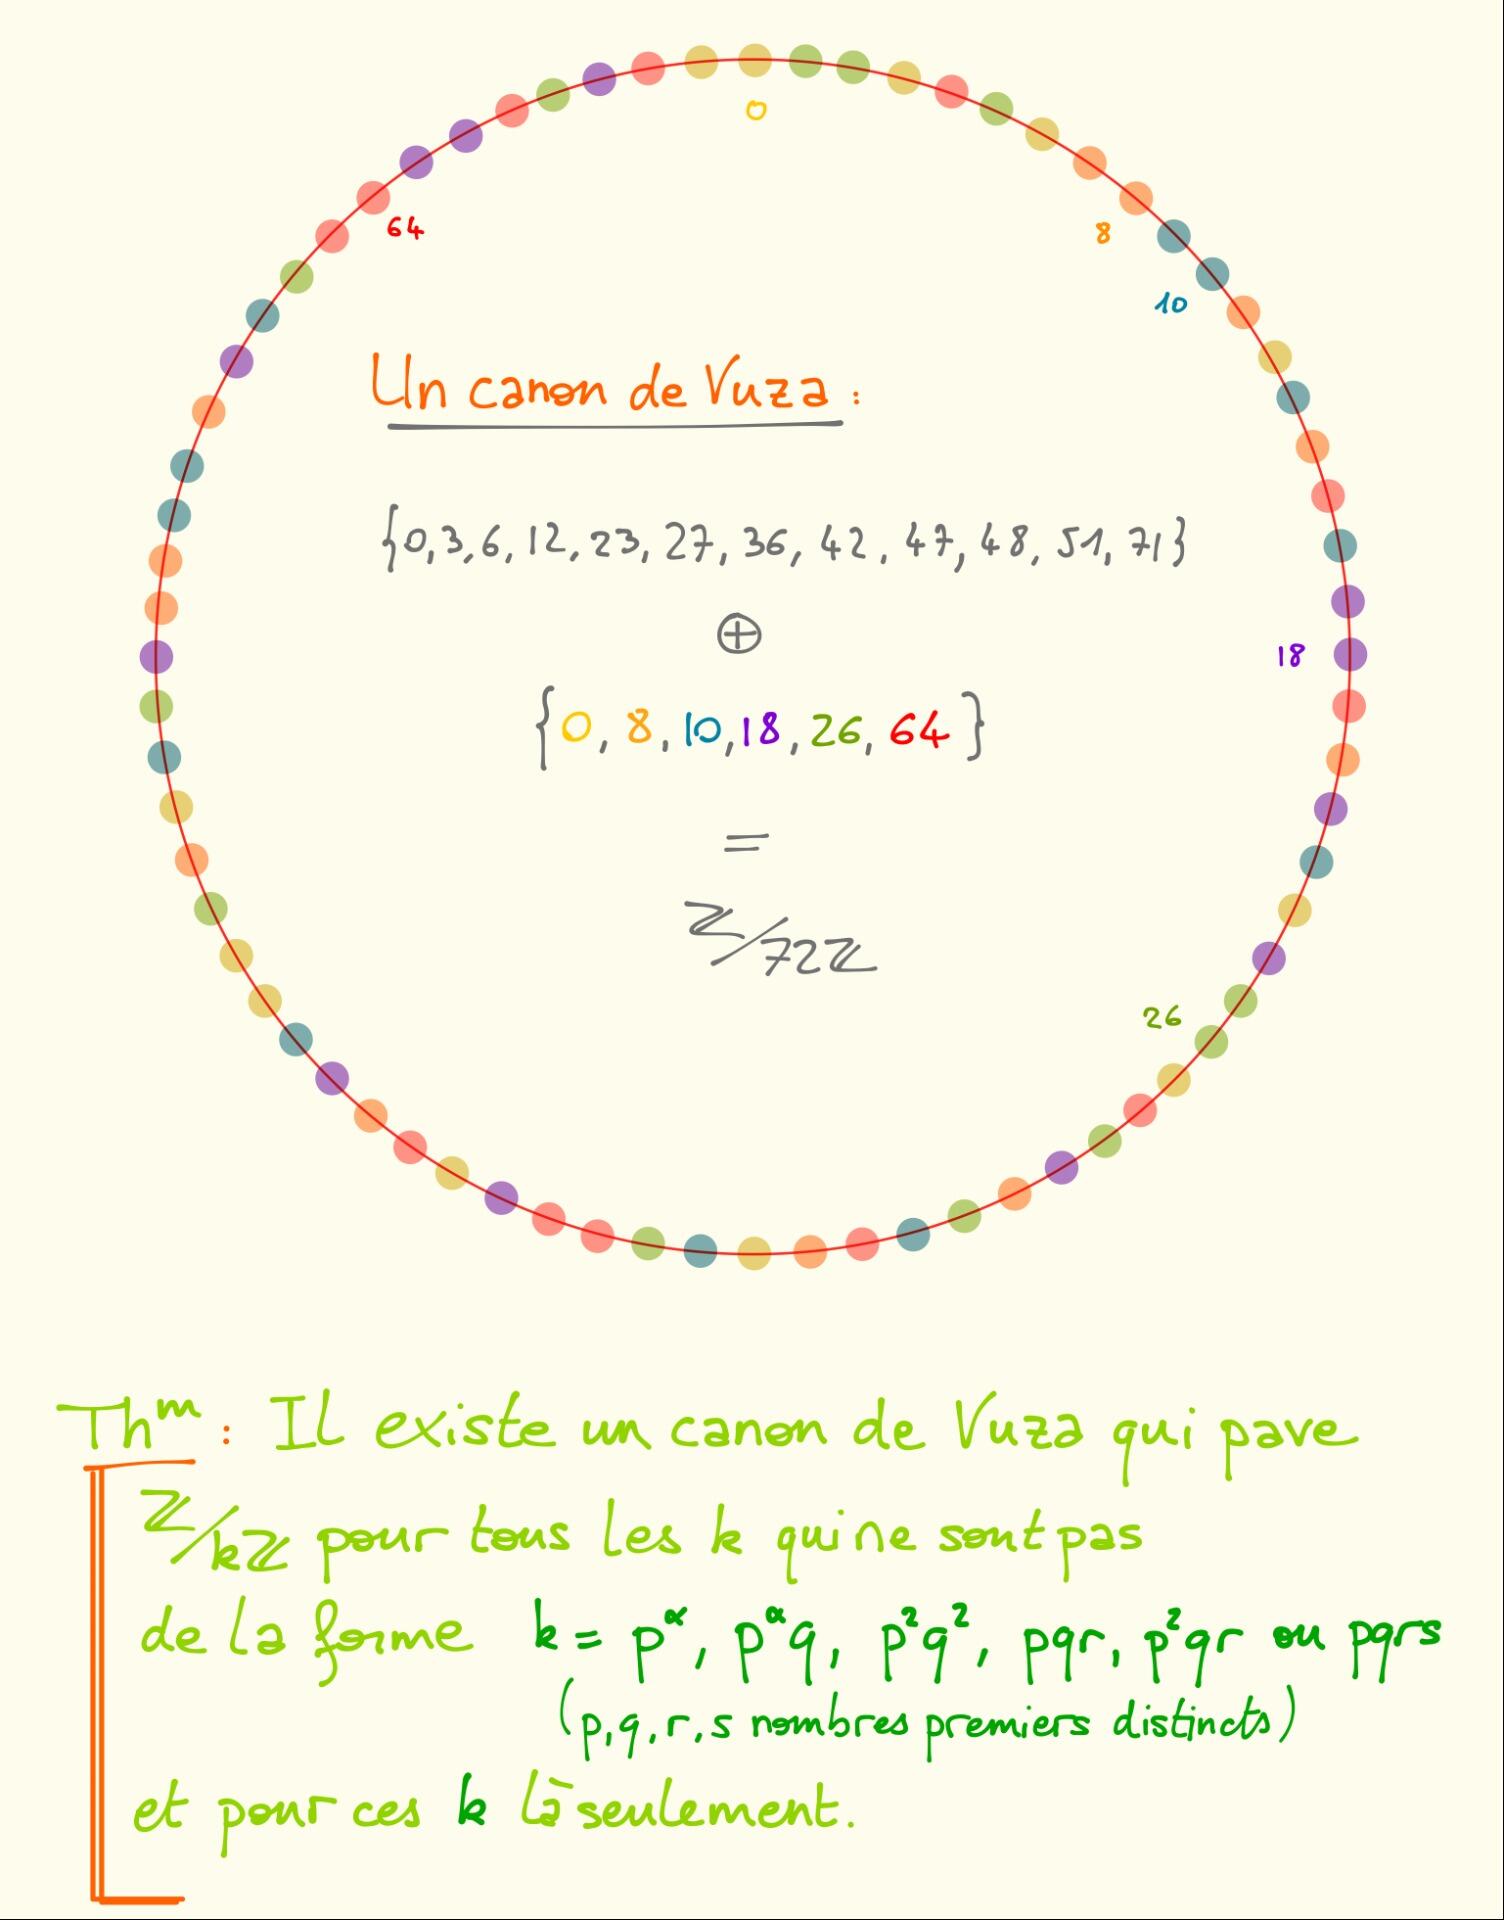 0
64
8
10
Un canon de Vuza :
{0, 3, 6, 12, 23, 27, 36, 42, 47, 48, 51, 71}
⊕
18
{0, 8, 10, 18, 26, 64}
=
ℤ/72ℤ
26
Thᵐ : Il existe un canon de Vuza qui pave
ℤ/kℤ pour tous les k qui ne sont pas
de la forme k = p^α, p^α q, p²q², pqr, p²qr ou pqrs
(p, q, r, s nombres premiers distincts)
et pour ces k là seulement.